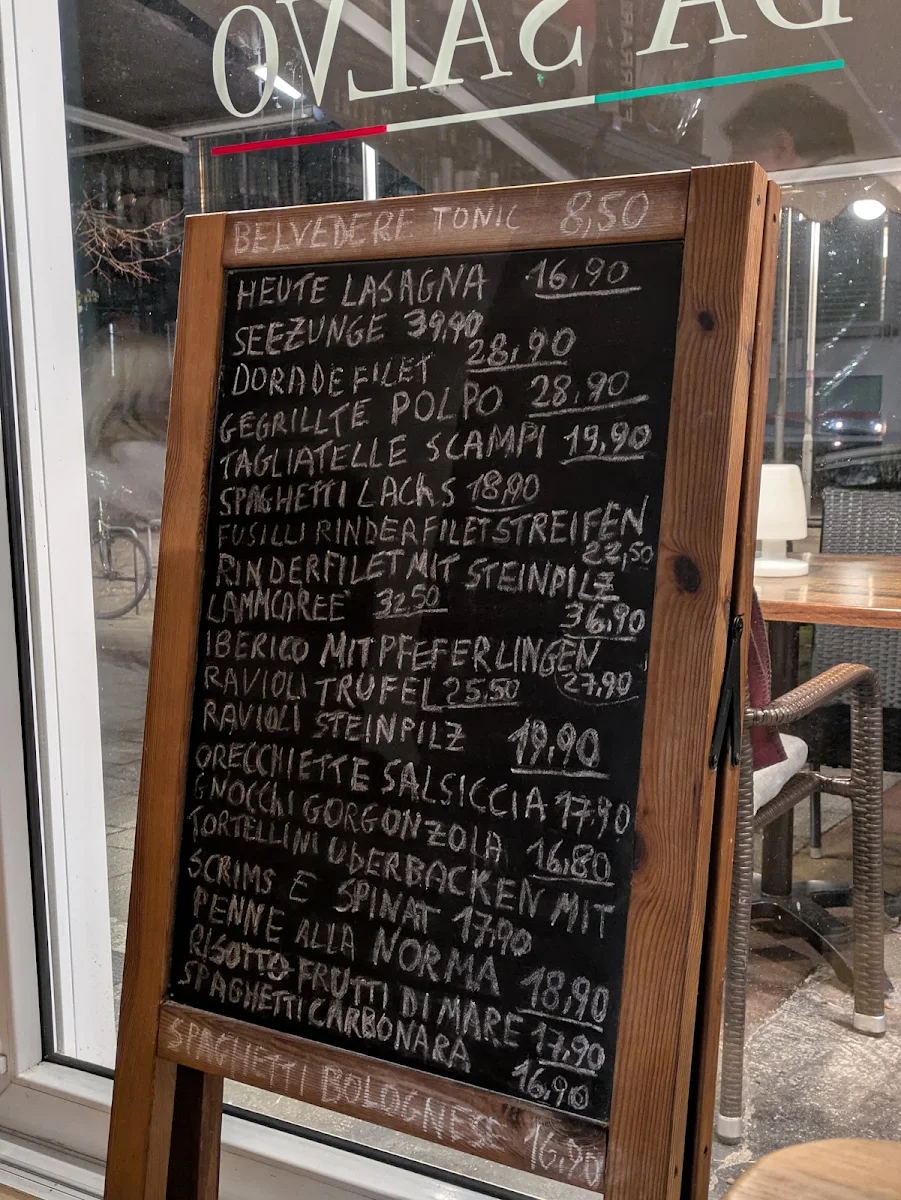 DA SALVO
BELVEDERE TONIC 8,50
HEUTE LASAGNA 16,90
SEEZUNGE 39,90
DORADEFILET 28,90
GEGRILLTE POLPO 28,90
TAGLIATELLE SCAMPI 19,90
SPAGHETTI LACHS 18,90
FUSILLI RINDERFILETSTREIFEN
22,50
RINDERFILET MIT STEINPILZ
36,90
LAMMCAREE' 32,50
IBERICO MIT PFEFERLINGEN
27,90
RAVIOLI TRUFEL 25,50
RAVIOLI STEINPILZ 19,90
ORECCHIETTE SALSICCIA 17,90
GNOCCHI GORGONZOLA 16,80
TORTELLINI UBERBACKEN MIT
SCRIMS E SPINAT 17,90
PENNE ALLA NORMA 18,90
RISOTTO FRUTTI DI MARE 17,90
SPAGHETTI CARBONARA 16,90
SPAGHETTI BOLOGNESE 16,90